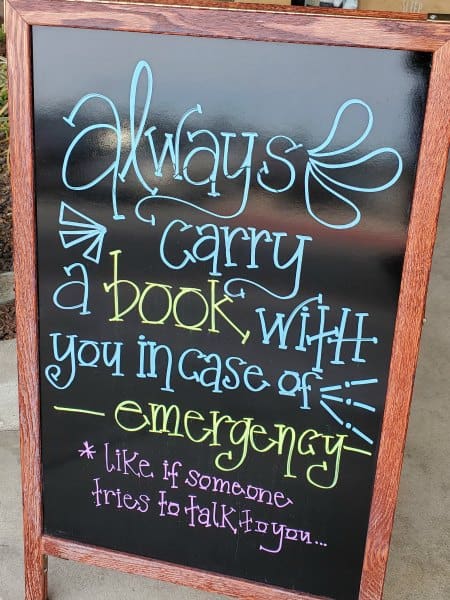 always
carry
a book with
you in case of
— emergency —
* like if someone
tries to talk to you...